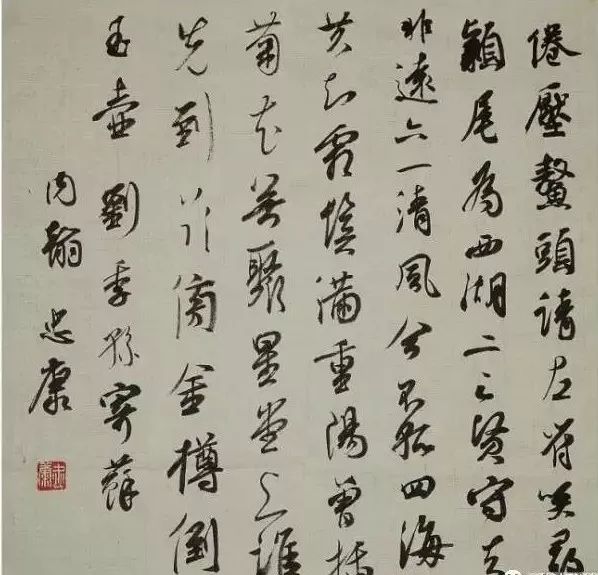 倦壓鰲頭請左符笑尋
穎尾為西湖二三賢守去
非遠六一清風今不孤四海
共知霜鬢滿重陽曾插
菊花無聚星堂上誰
先到傍金樽倒
玉壺劉季孫寄蘇
內翰 忠康